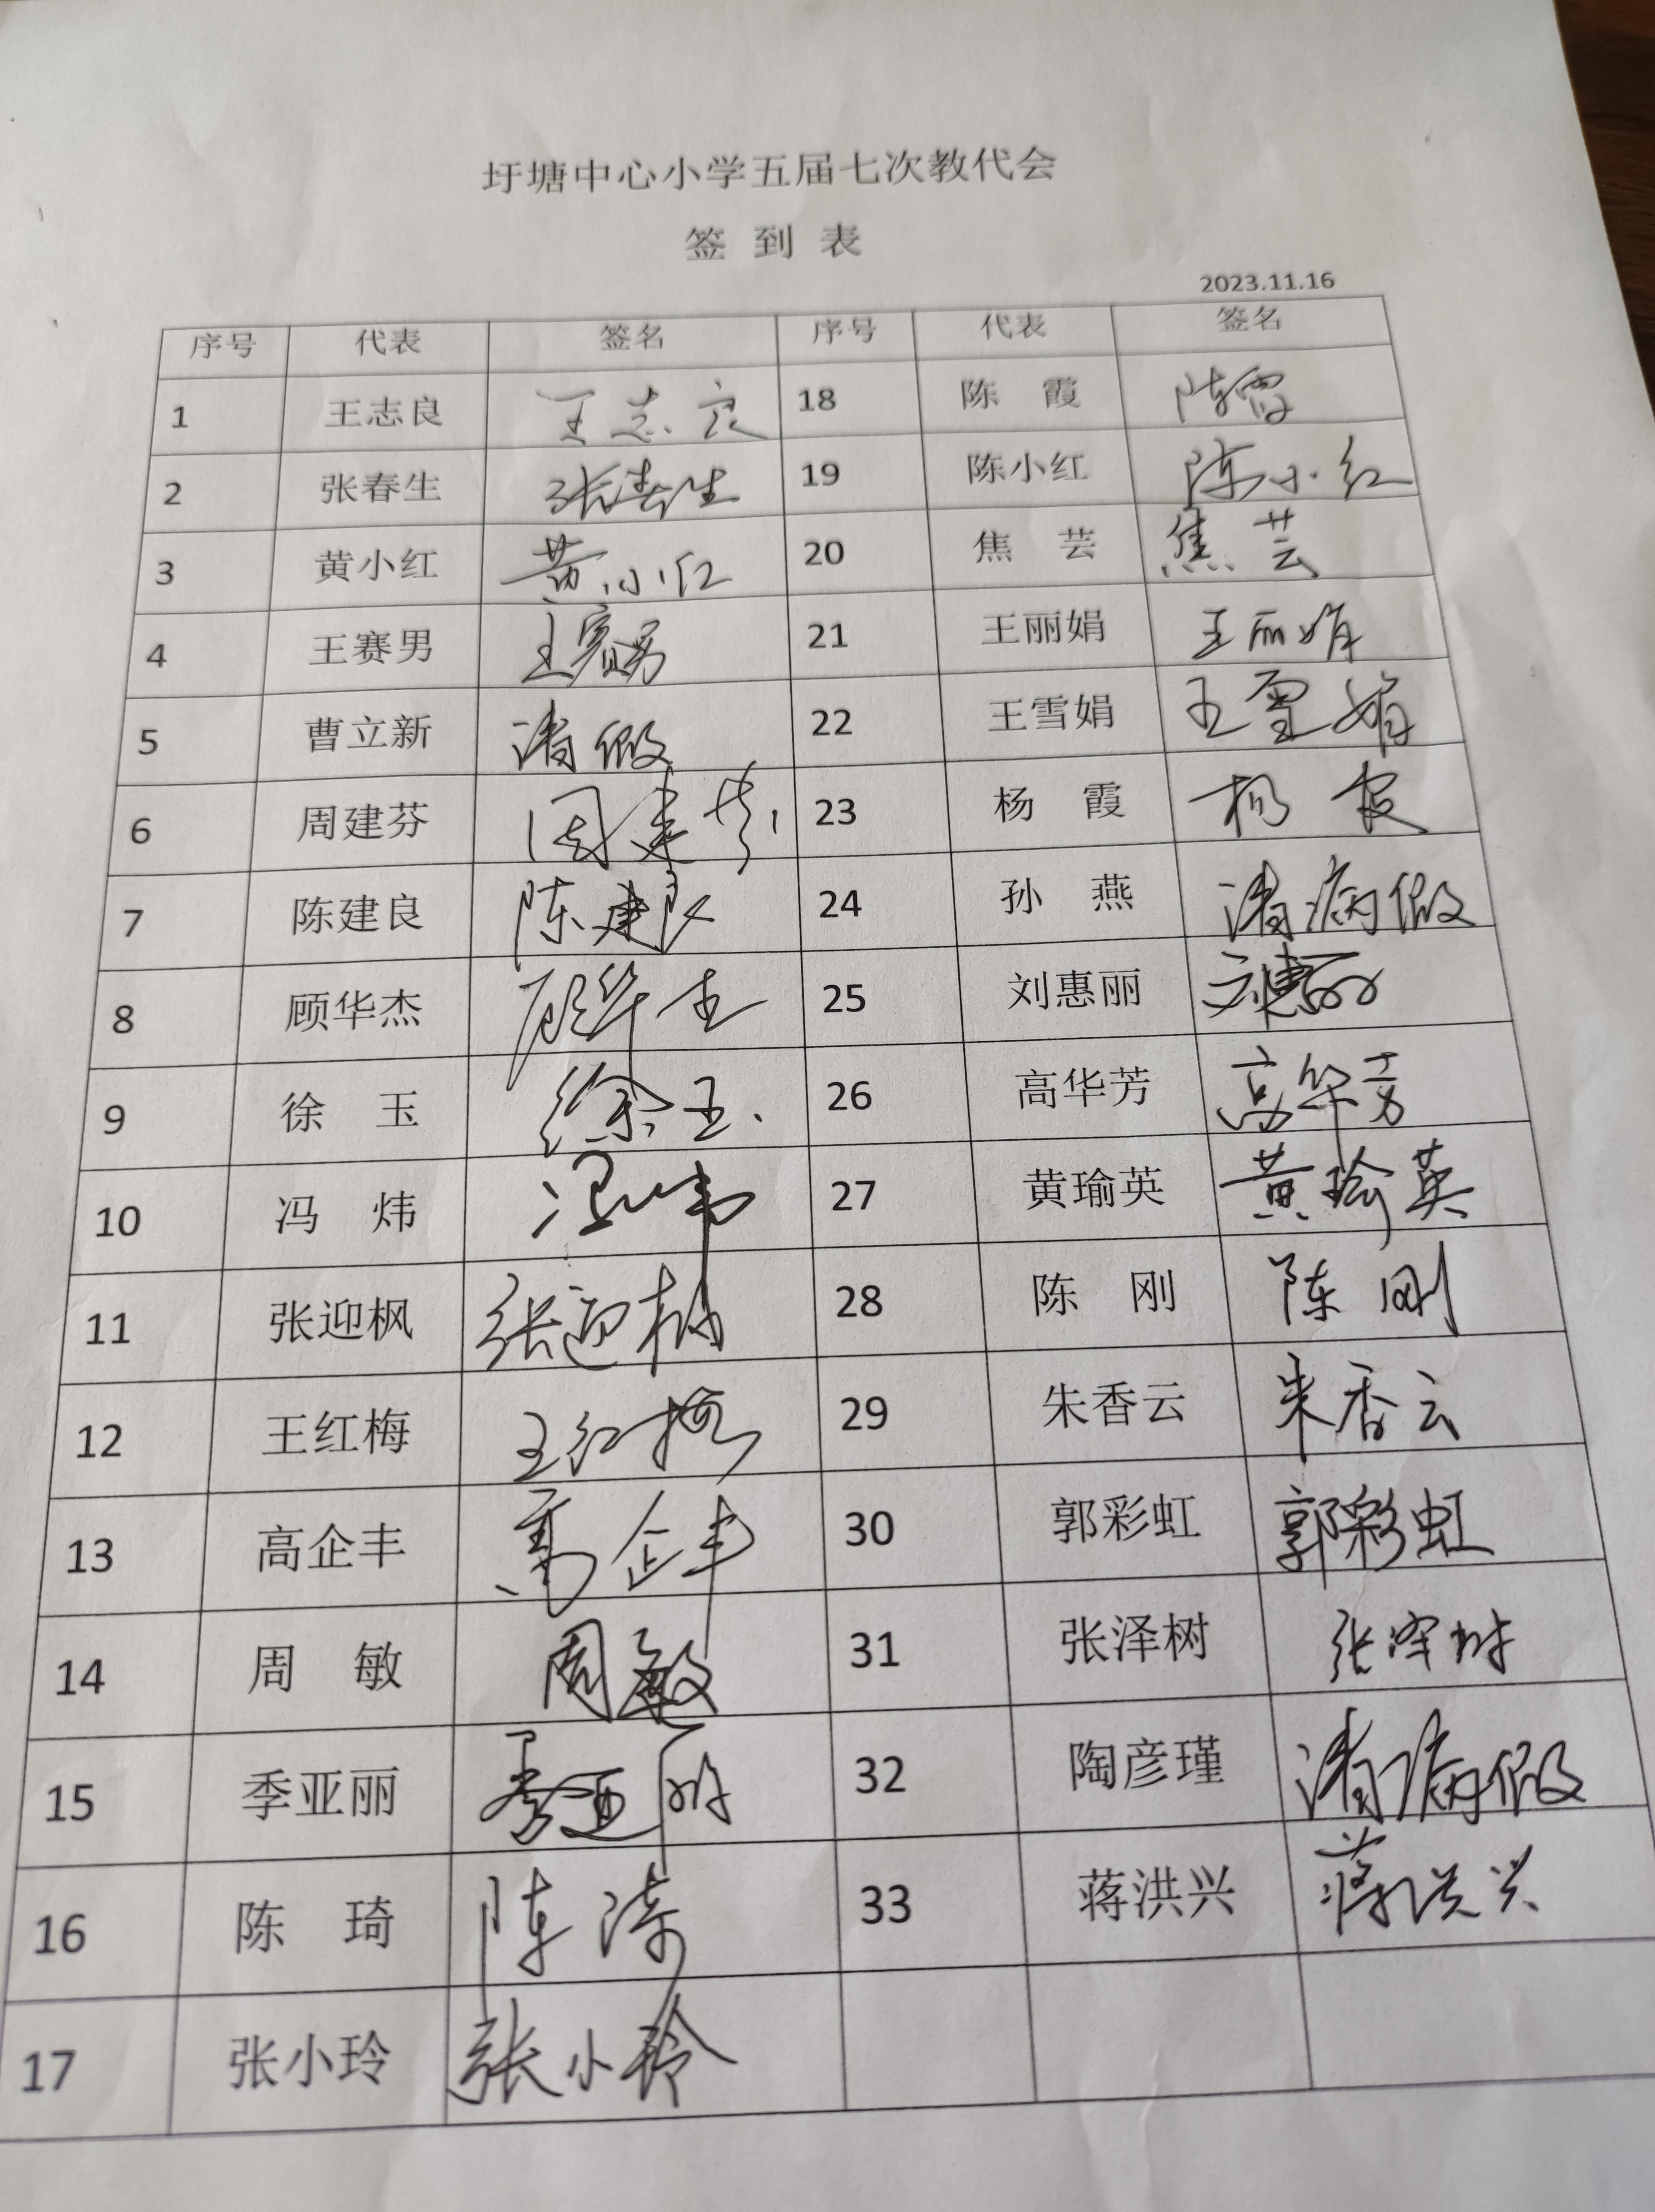 圩塘中心小学五届七次教代会
签 到 表
2023.11.16
序号 代表 签名 序号 代表 签名
1 王志良 王志良 18 陈 霞 陈霞
2 张春生 张春生 19 陈小红 陈小红
3 黄小红 黄小红 20 焦 芸 焦芸
4 王赛男 王赛男 21 王丽娟 王丽娟
5 曹立新 请假 22 王雪娟 王雪娟
6 周建芬 周建芬 23 杨 霞 杨霞
7 陈建良 陈建良 24 孙 燕 请病假
8 顾华杰 顾华杰 25 刘惠丽 刘惠丽
9 徐 玉 徐玉 26 高华芳 高华芳
10 冯 炜 冯炜 27 黄瑜英 黄瑜英
11 张迎枫 张迎枫 28 陈 刚 陈刚
12 王红梅 王红梅 29 朱香云 朱香云
13 高企丰 高企丰 30 郭彩虹 郭彩虹
14 周 敏 周敏 31 张泽树 张泽树
15 季亚丽 季亚丽 32 陶彦瑾 请病假
16 陈 琦 陈琦 33 蒋洪兴 蒋洪兴
17 张小玲 张小玲